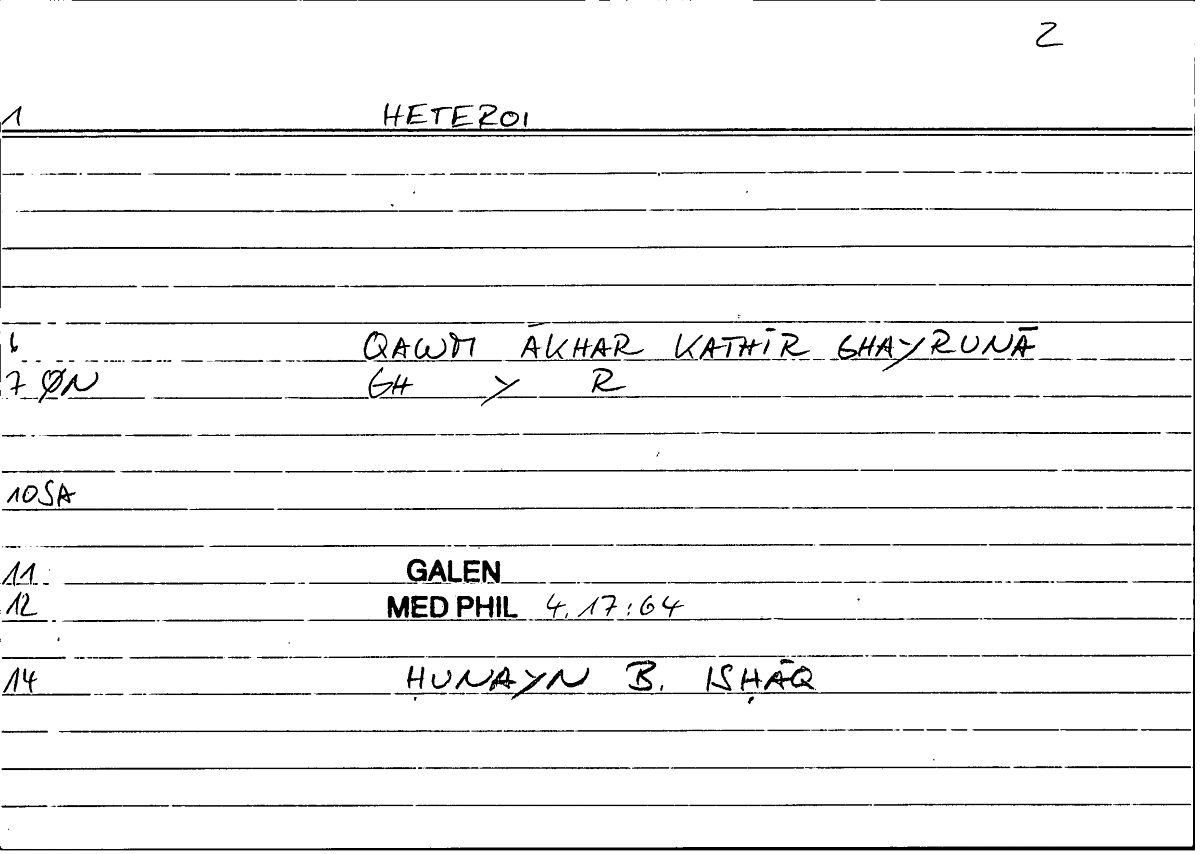 2
1 HETEROI
6 QAWM ĀKHAR KATHĪR GHAYRUNĀ
7 ØN GH Y R
10SA
11 GALEN
12 MED PHIL 4,17:64
14 ḤUNAYN B. ISḤĀQ